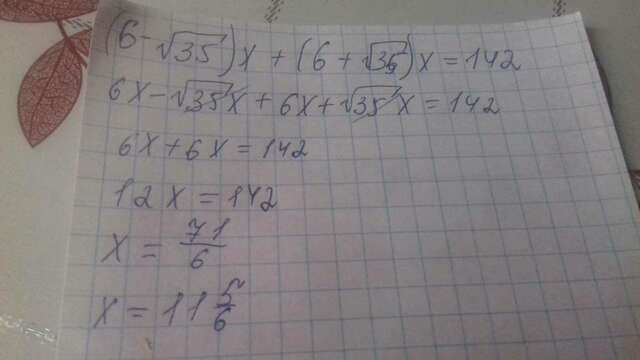 (6-√35)x + (6+√35)x = 142
6x-√35x+6x+√35x = 142
6x+6x = 142
12x = 142
x = 71/6
x = 11 5/6